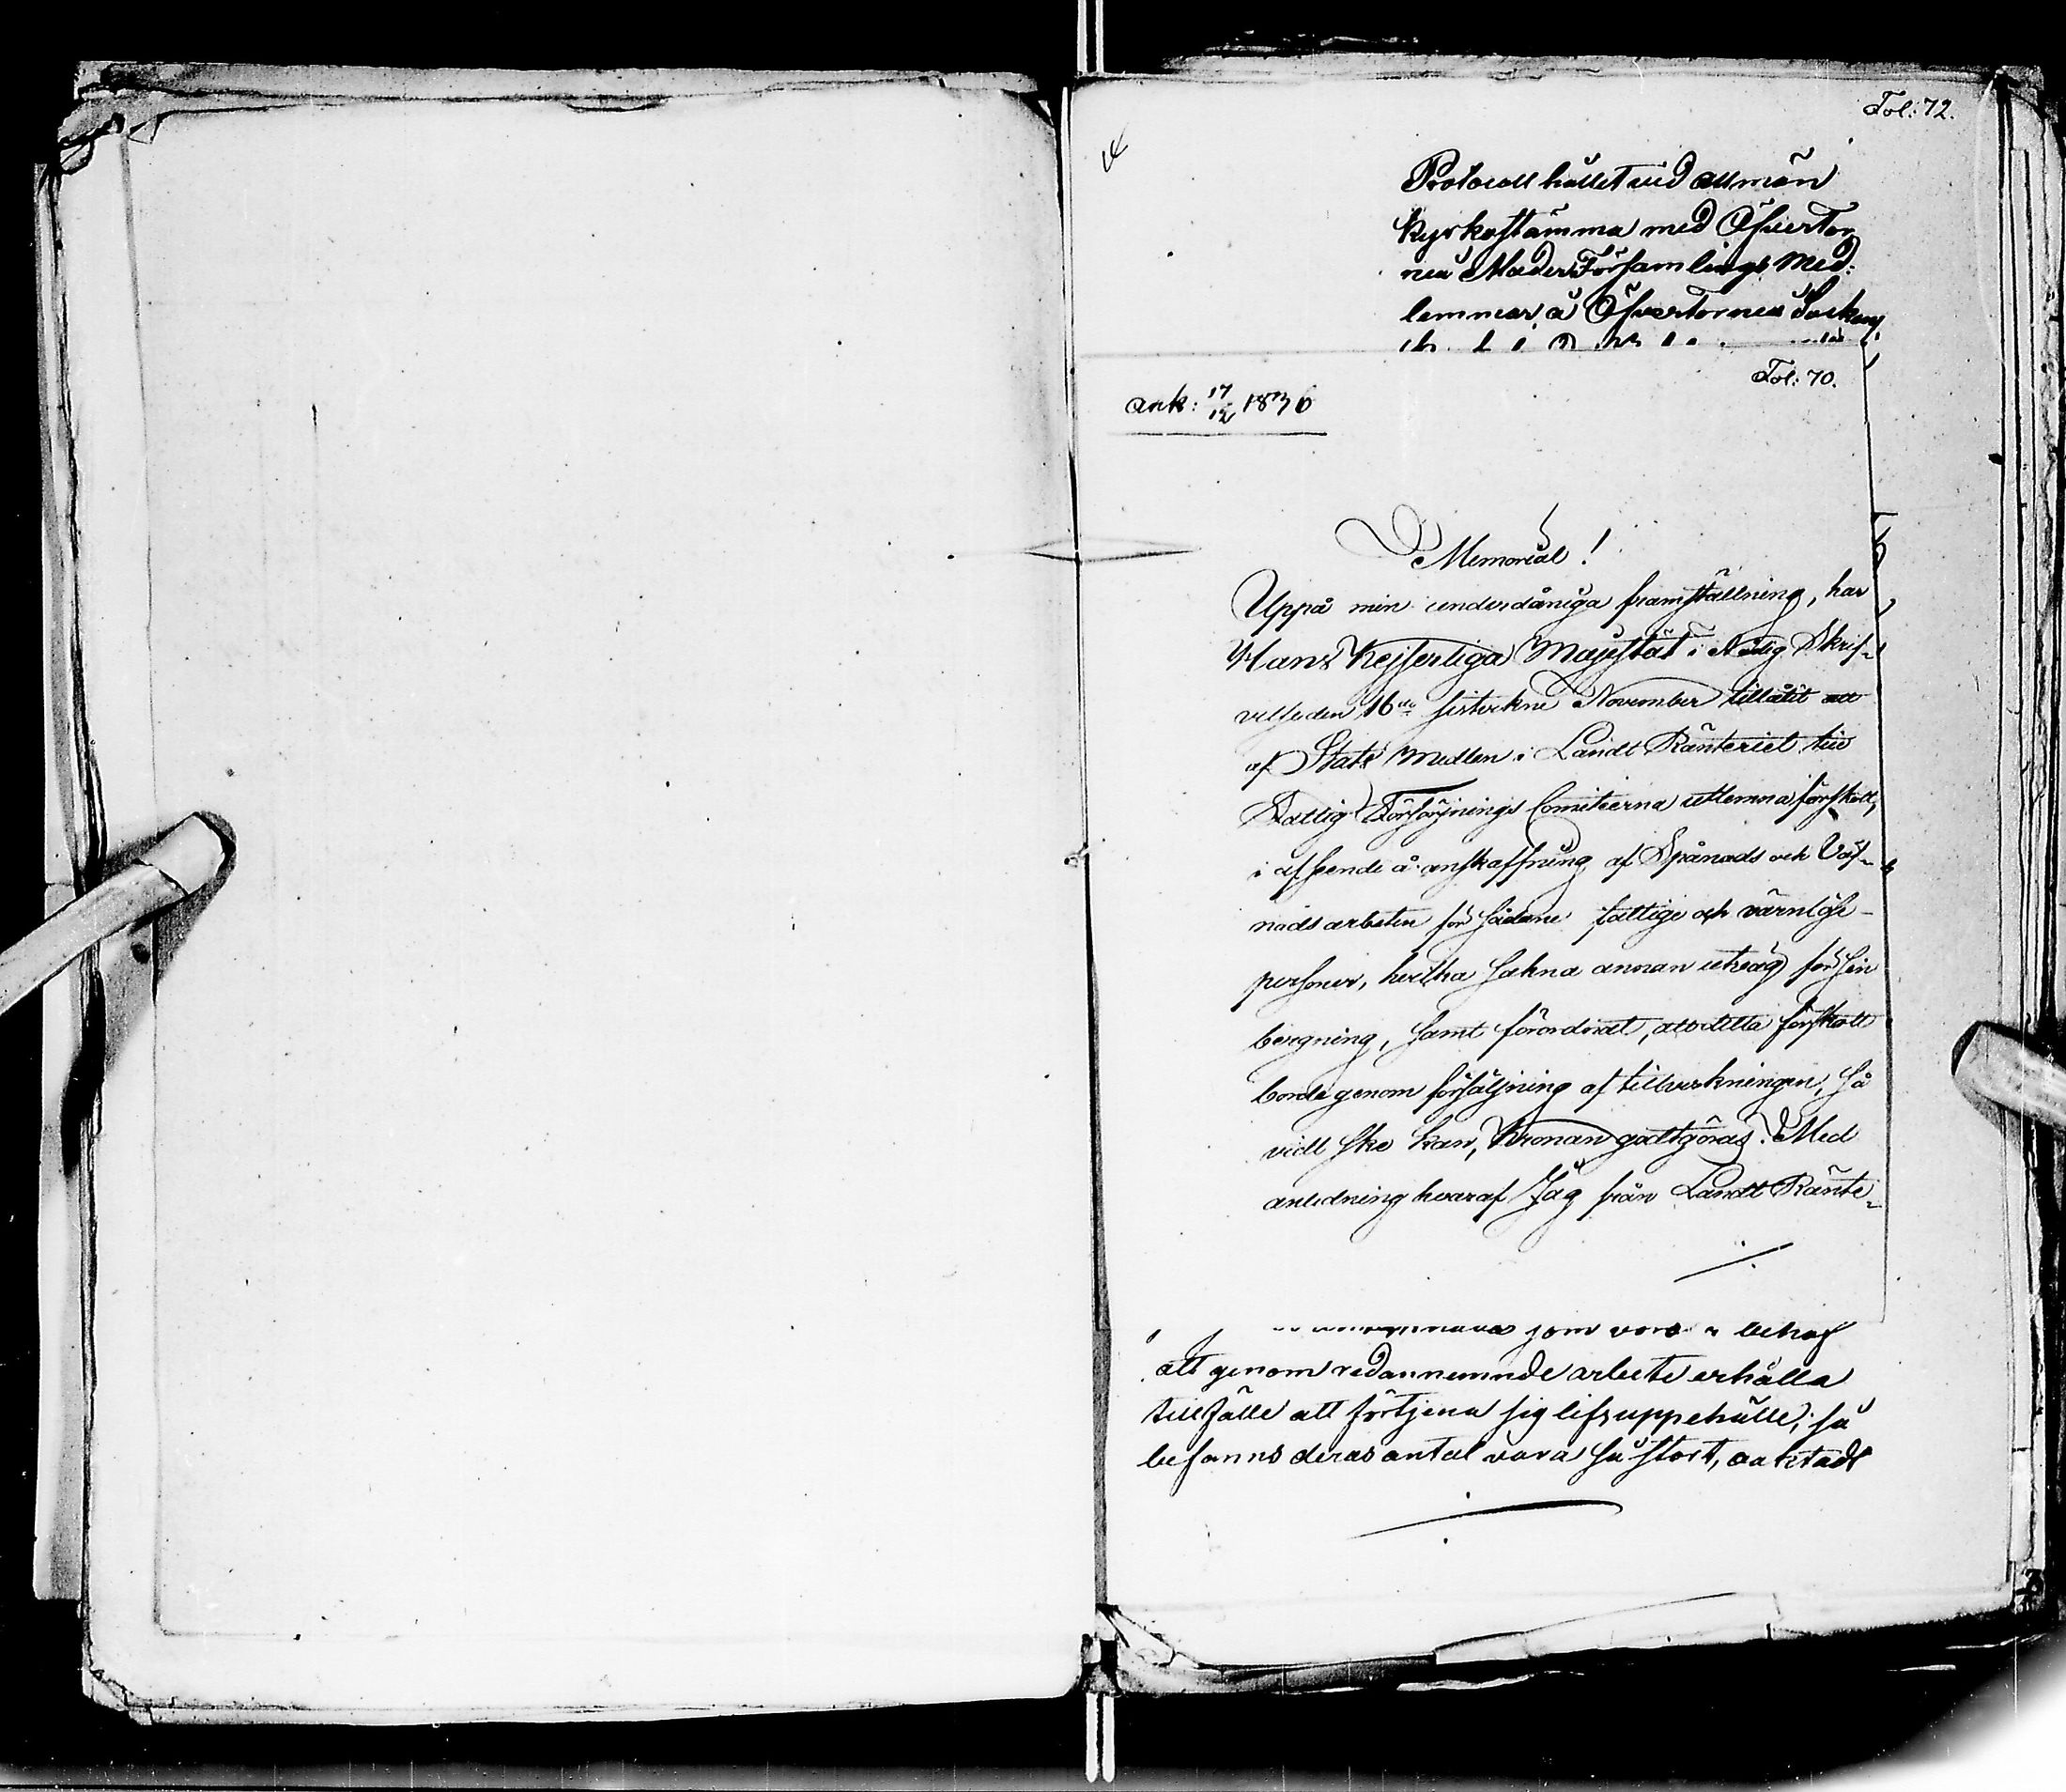 Fol: 72.
Protocoll hållet vid allmän
kyrkostämma med Öfvertor
neå Moder Församlings Med:
lemmar, å Öfvertorneå Sockens
Fol: 70.
Ank: 17/12 1836
Memorial!
Uppå min underdåniga framställning, har
Hans Kejserliga Majestät i Nådig Skrif-
velse den 16de sistvekne November tillåtit att
af Stats Medlen i Landt Ränteriet till
Fattig Försörjnings Comiteerna utlemna förskott,
i afseende å anskaffning af Spånads och Väf-
nads arbeten för sådane fattige och värnlöse
personer, hvilka sakna annan utväg för sin
bergning, samt förordnat, att detta förskott
borde genom försäljning af tillverkningen, så
vidt ske kan, Kronan godtgöras. Med
anledning hvaraf Jag från Landt Ränte-
som voro i behof
att genom redannemnde arbete erhålla
tillfälle att förtjena sig lifsuppehälle; så
befanns deras antal vara så stort, aaktadt